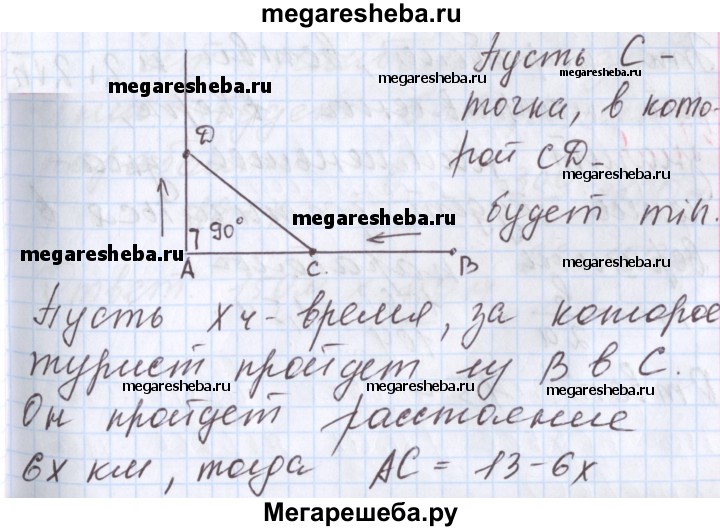 megaresheba.ru
Пусть С -
megaresheba.ru
megaresheba.ru
megaresheba.ru
точка, в кото-
D
рой CD -
megaresheba.ru
90°
megaresheba.ru
будет min.
megaresheba.ru
A
C.
B
megaresheba.ru
Пусть х ч - время, за которое
турист пройдет из В в С.
megaresheba.ru
megaresheba.ru
megaresheba.ru
Он пройдет расстояние
6х км, тогда АС = 13 - 6х
Мегарешеба.ру